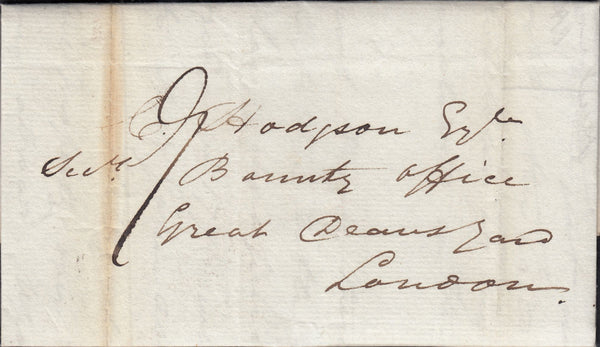 C. Hodgson Esqre
Secy Bounty Office
Great Deans Yard
London.